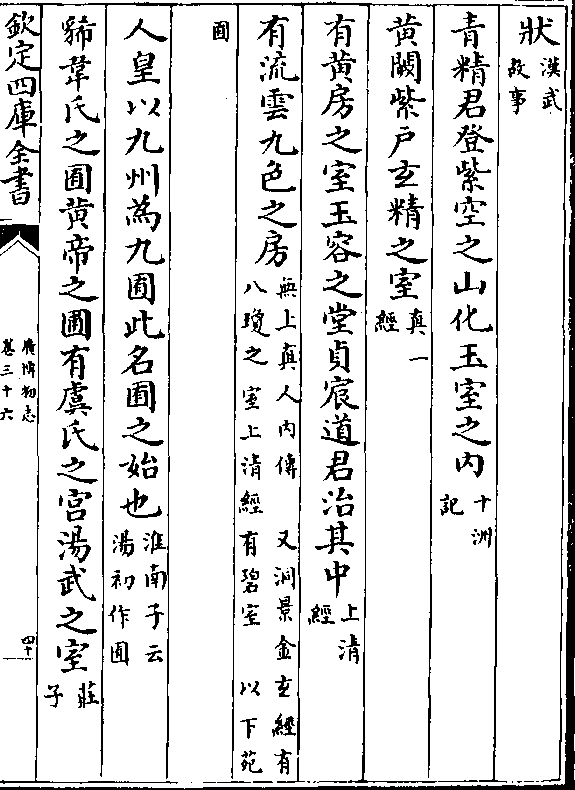 狀漢武故事
青精君登紫空之山化玉室之内十洲記
黄闕紫户玄精之室真一經
有黄房之室玉容之堂貞宸道君治其中上清經
有流雲九色之房無上真人内傳 又洞景金玄經有八瓊之室上清經有碧室 以下苑
囿
人皇以九州為九囿此名囿之始也淮南子云湯初作囿
豨韋氏之囿黄帝之囿有虞氏之宫湯武之室莊子
欽定四庫全書
廣博物志
卷三十六
四十